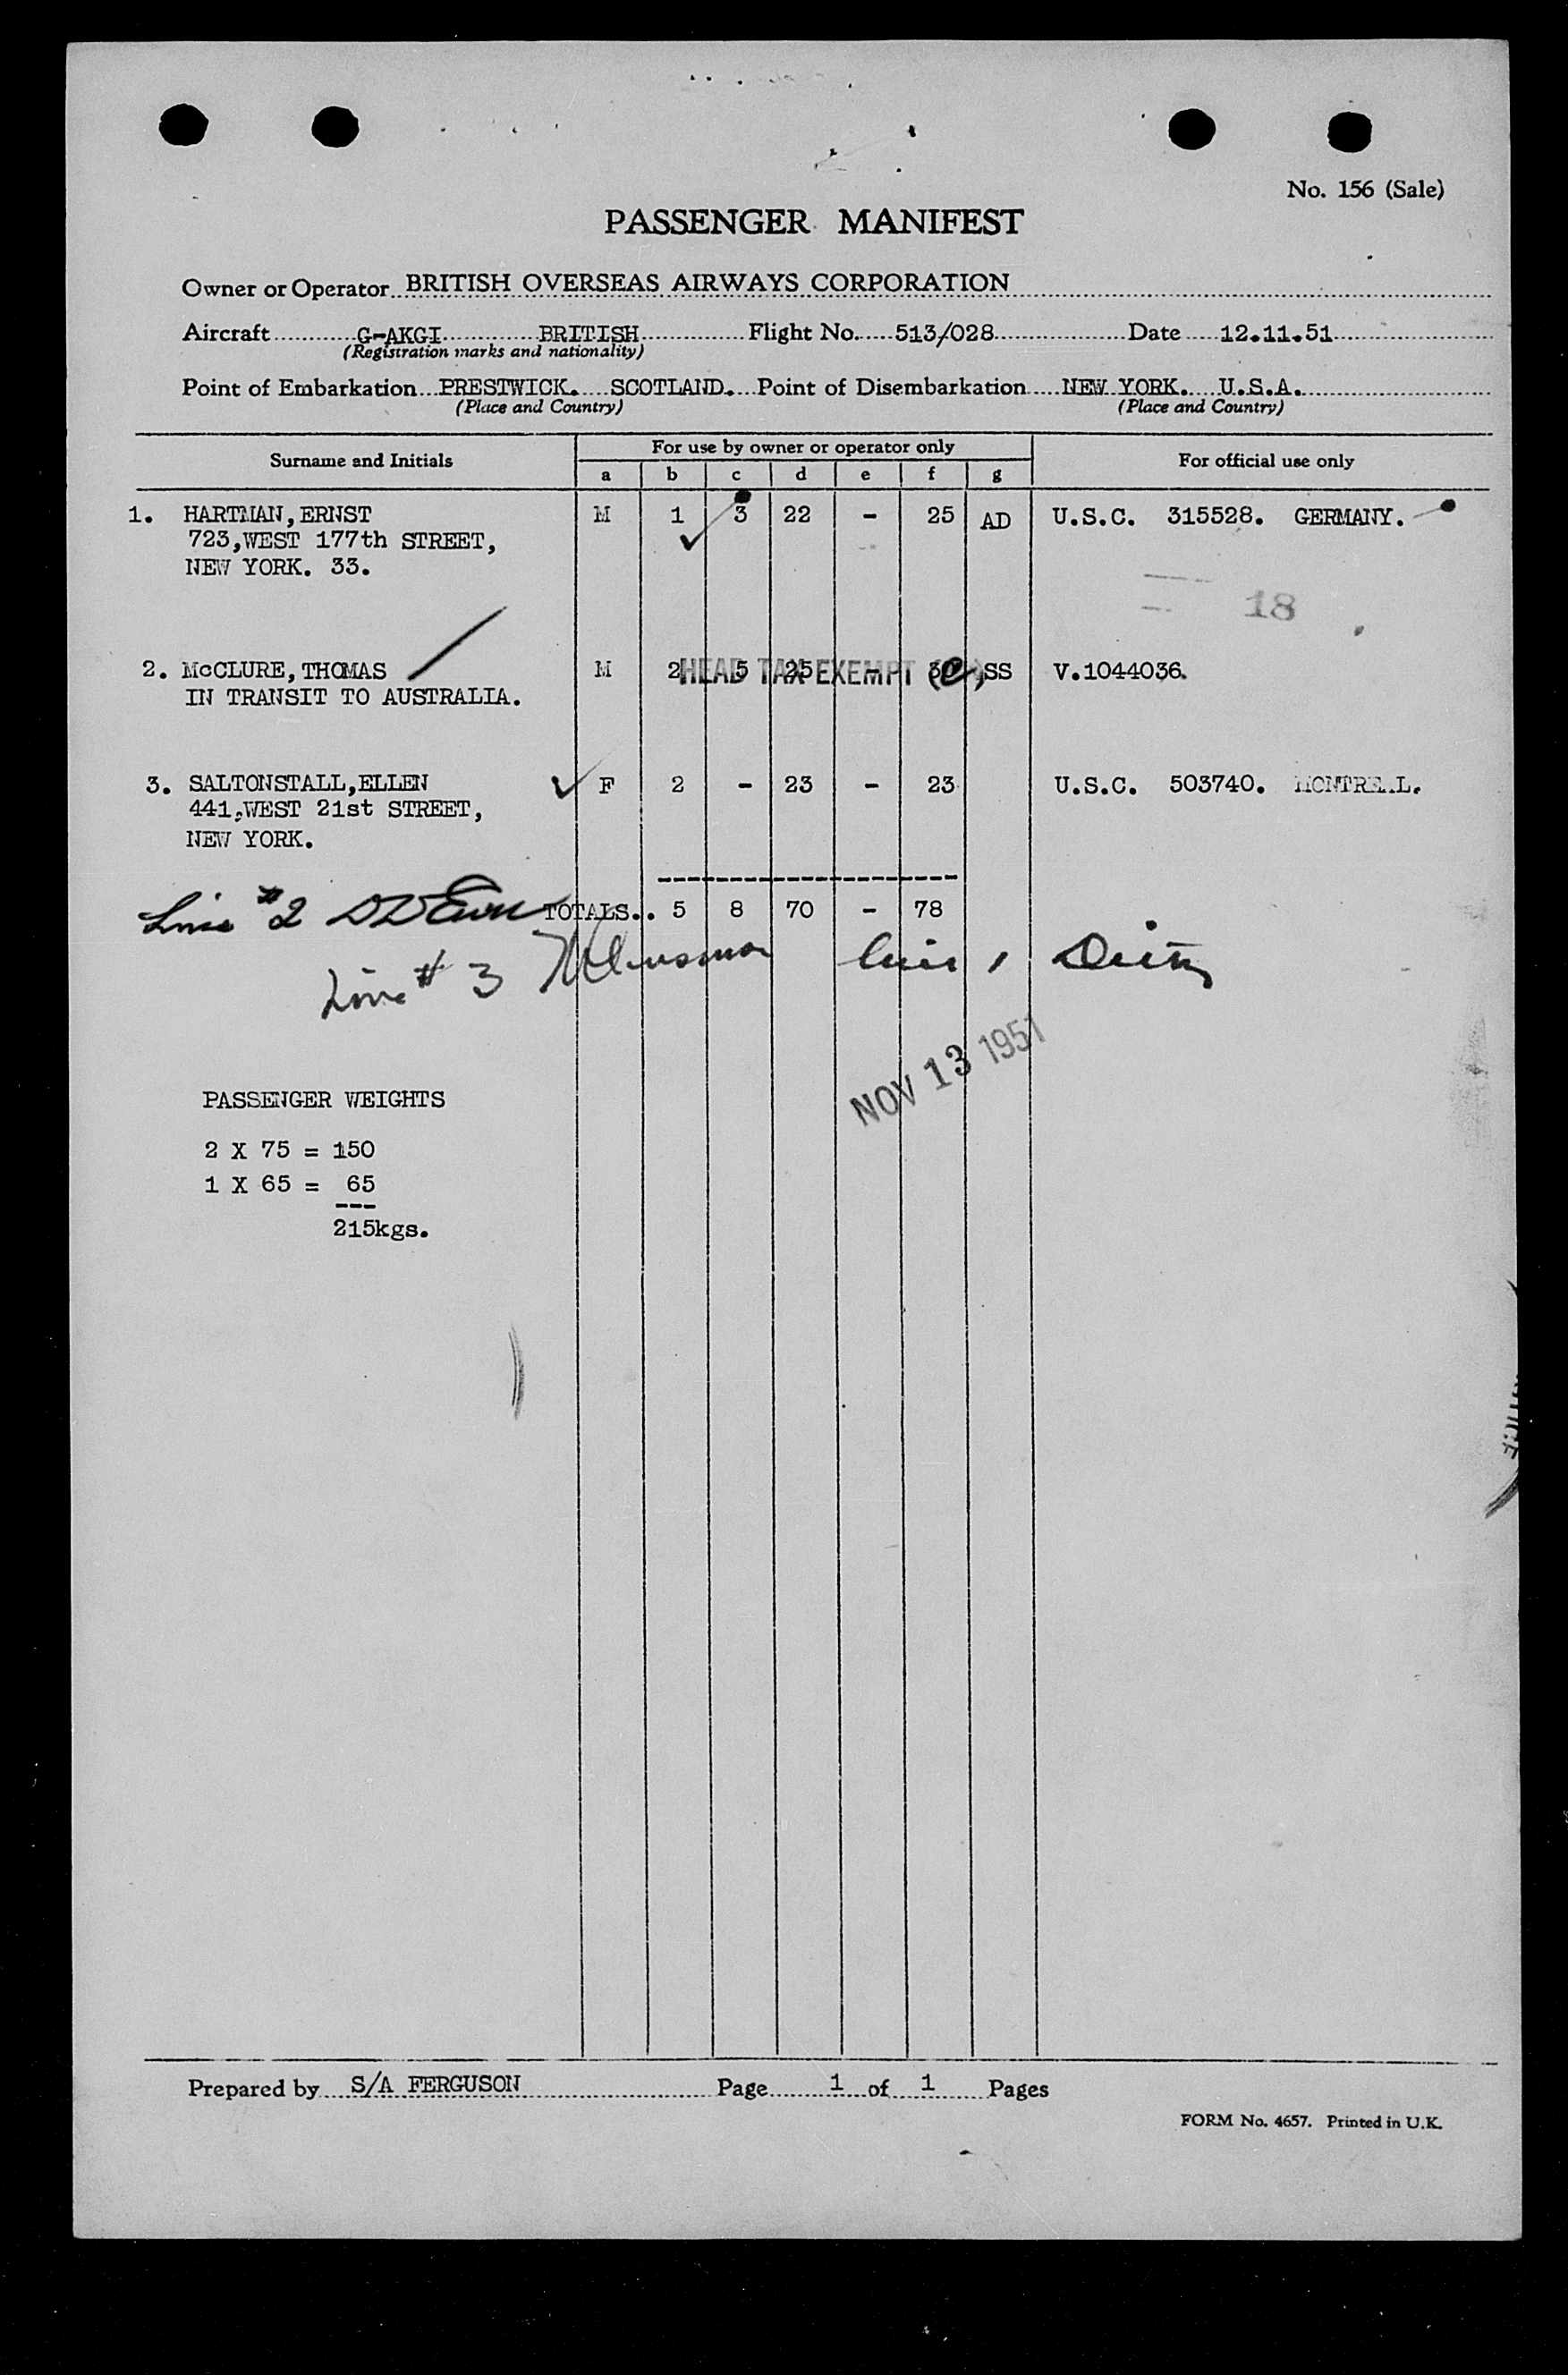 No. 156 (Sale)
PASSENGER MANIFEST
Owner or Operator BRITISH OVERSEAS AIRWAYS CORPORATION
Aircraft G-AKGI BRITISH Flight No. 513/028 Date 12.11.51
(Registration marks and nationality)
Point of Embarkation PRESTWICK. SCOTLAND. Point of Disembarkation NEW YORK. U.S.A.
(Place and Country) (Place and Country)
Surname and Initials For use by owner or operator only For official use only
a b c d e f g
1. HARTMAN, ERNST M 1 3 22 - 25 AD U.S.C. 315528. GERMANY.
723, WEST 177th STREET,
NEW YORK. 33.
18
2. McCLURE, THOMAS M 2 5 25 - 30 SS V.1044036.
HEAD TAX EXEMPT
IN TRANSIT TO AUSTRALIA.
3. SALTONSTALL, ELLEN F 2 - 23 - 23 U.S.C. 503740. MONTREAL.
441, WEST 21st STREET,
NEW YORK.
TOTALS.. 5 8 70 - 78
Line #2
Line # 3
NOV 13 1951
PASSENGER WEIGHTS
2 X 75 = 150
1 X 65 = 65
215kgs.
Prepared by S/A FERGUSON Page 1 of 1 Pages
FORM No. 4657. Printed in U.K.